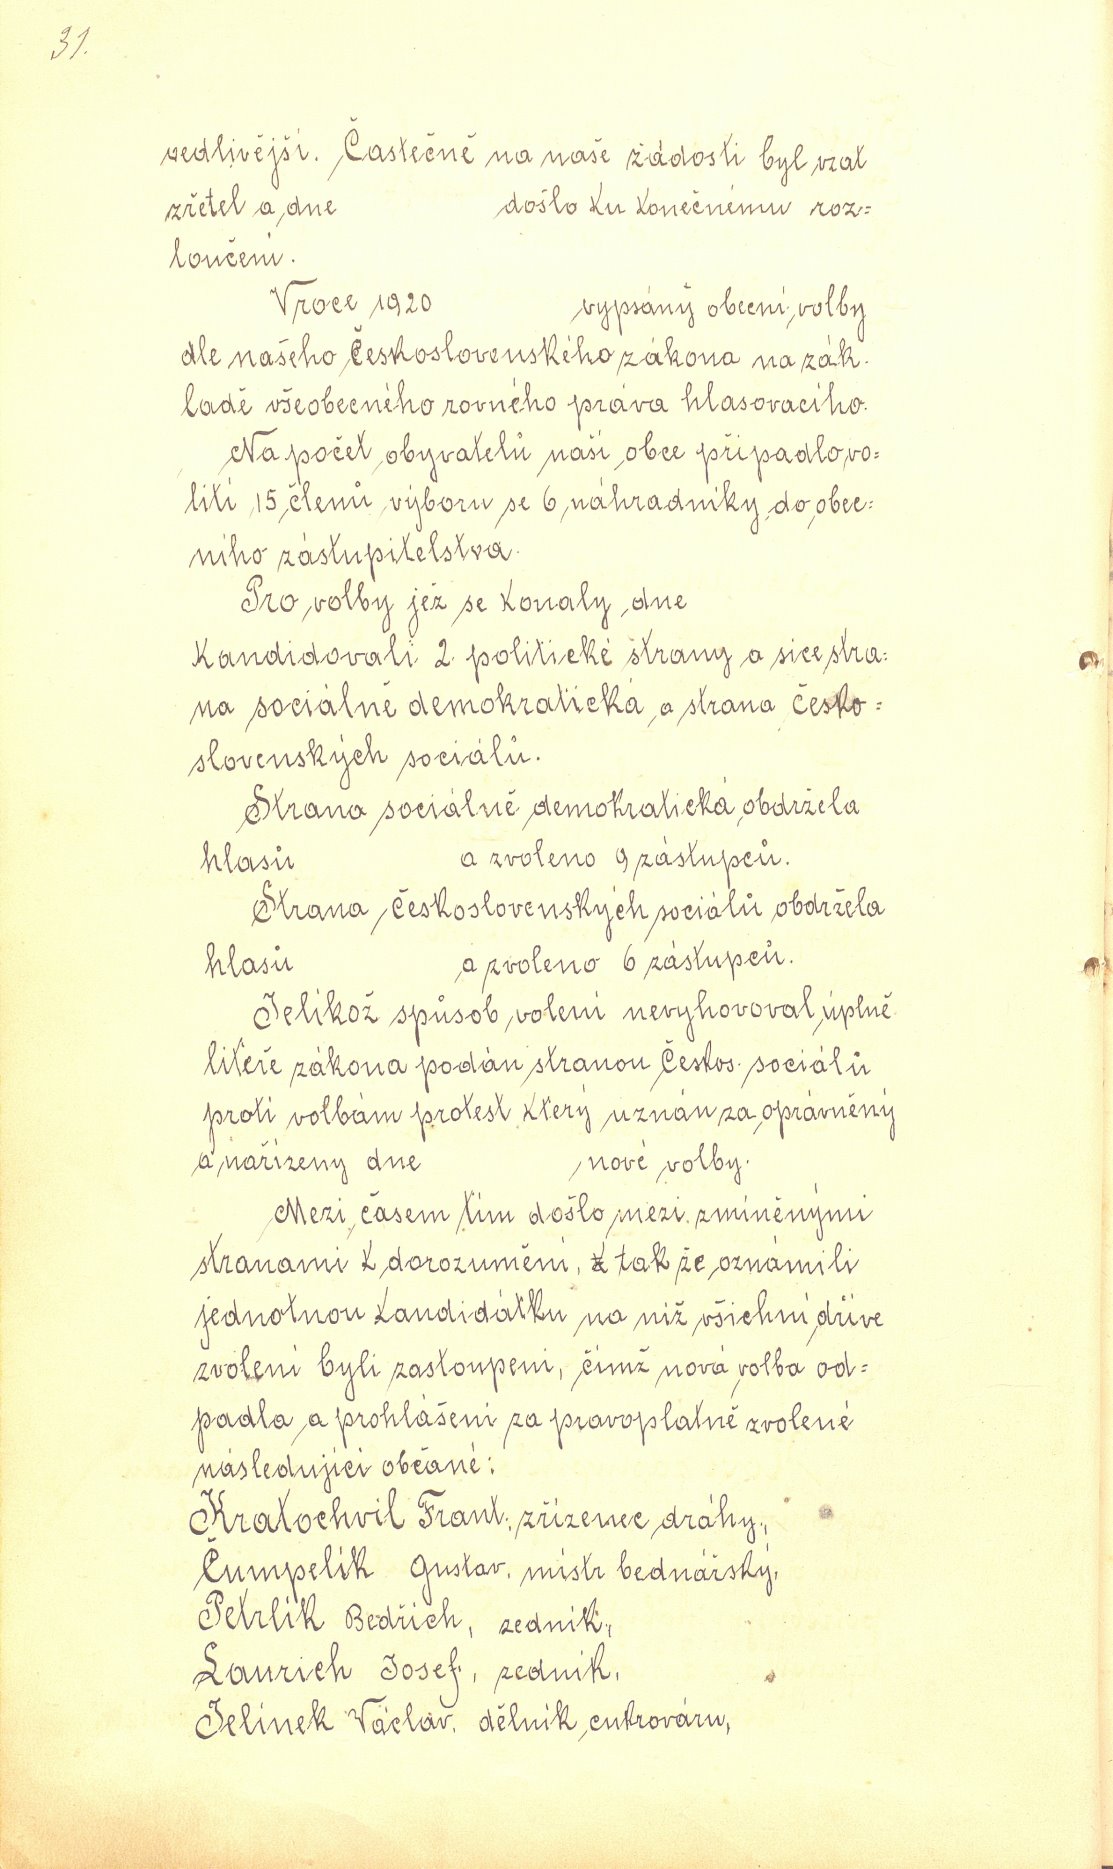 31.
vedlivější. Častečně na naše žádosti byl vzat
zřetel a dne došlo ku konečnému roz=
loučení.
V roce 1920 vypsány obecní volby
dle našeho Československého zákona na zák-
ladě všeobecného rovného práva hlasovacího.
Na počet obyvatelů naší obce připadlo vo=
liti 15 členů výboru se 6 náhradníky do obec=
ního zástupitelstva.
Pro volby jež se konaly dne
kandidovali 2 politické strany a sice stra=
na sociálně demokratická a strana česko=
slovenských sociálů.
Strana sociálně demokratická obdržela
hlasů a zvoleno 9 zástupců.
Strana Československých sociálů obdržela
hlasů a zvoleno 6 zástupců.
Jelikož spůsob volení nevyhovoval úplně
liteře zákona podán stranou Českos. sociálů
proti volbám protest který uznán za oprávněný
a nařízeny dne nové volby.
Mezi časem tím došlo mezi zmíněnými
stranami k dorozumění, tak že oznámili
jednotnou kandidátku na niž všichni dříve
zvolení byli zastoupeni, čímž nová volba od=
padla a prohlášeni za pravoplatně zvolené
následující občané:
Kratochvíl Frant., zřízenec dráhy,
Čumpelík Gustav, mistr bednářský,
Petrlík Bedřich, zedník,
Laurich Josef, zedník,
Jelínek Václav, dělník cukrováru,